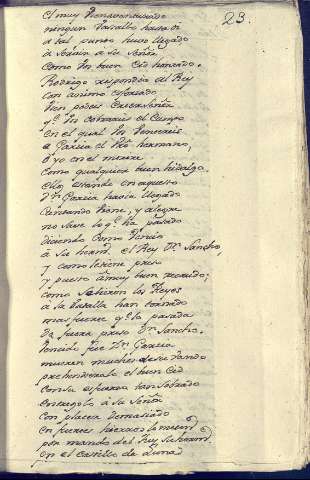 23.
el muy Bienaventurado
ningun Vasallo hasta oi
a tal punto huvo llegado
a servir a su Señor
como un buen Cid honrado.
Rodrigo respondio al Rey
con animo esforzado
bien podeis Señor
qe. vos cobrareis el Campo
en el qual vos vencereis
a Garcia el vro hermano,
o yo en el morire
como qualquiera buen hidalgo.
ellos estando en aquesto
Dn. Garcia havia llegado
cantando viene, y alegre
no save lo qe. ha pasado
diciendo como venia
à su herm. el Rey Dn. Sancho,
y como le tiene preso
y puesto à muy buen recaudo;
como salieron los Reyes
a la batalla han tornado
mas fuerte qe. la pasada
de fuera preso Dn. Sancho.
Vencido fue Dn. Garcia
mueren muchos de su vando
prehendierale el buen Cid
con su esfuerzo sobrado
entregolo à su Señor
con placer demasiado
en fuertes hierros lo meten
por mando del Rey su herm.
en el Castillo de Luna